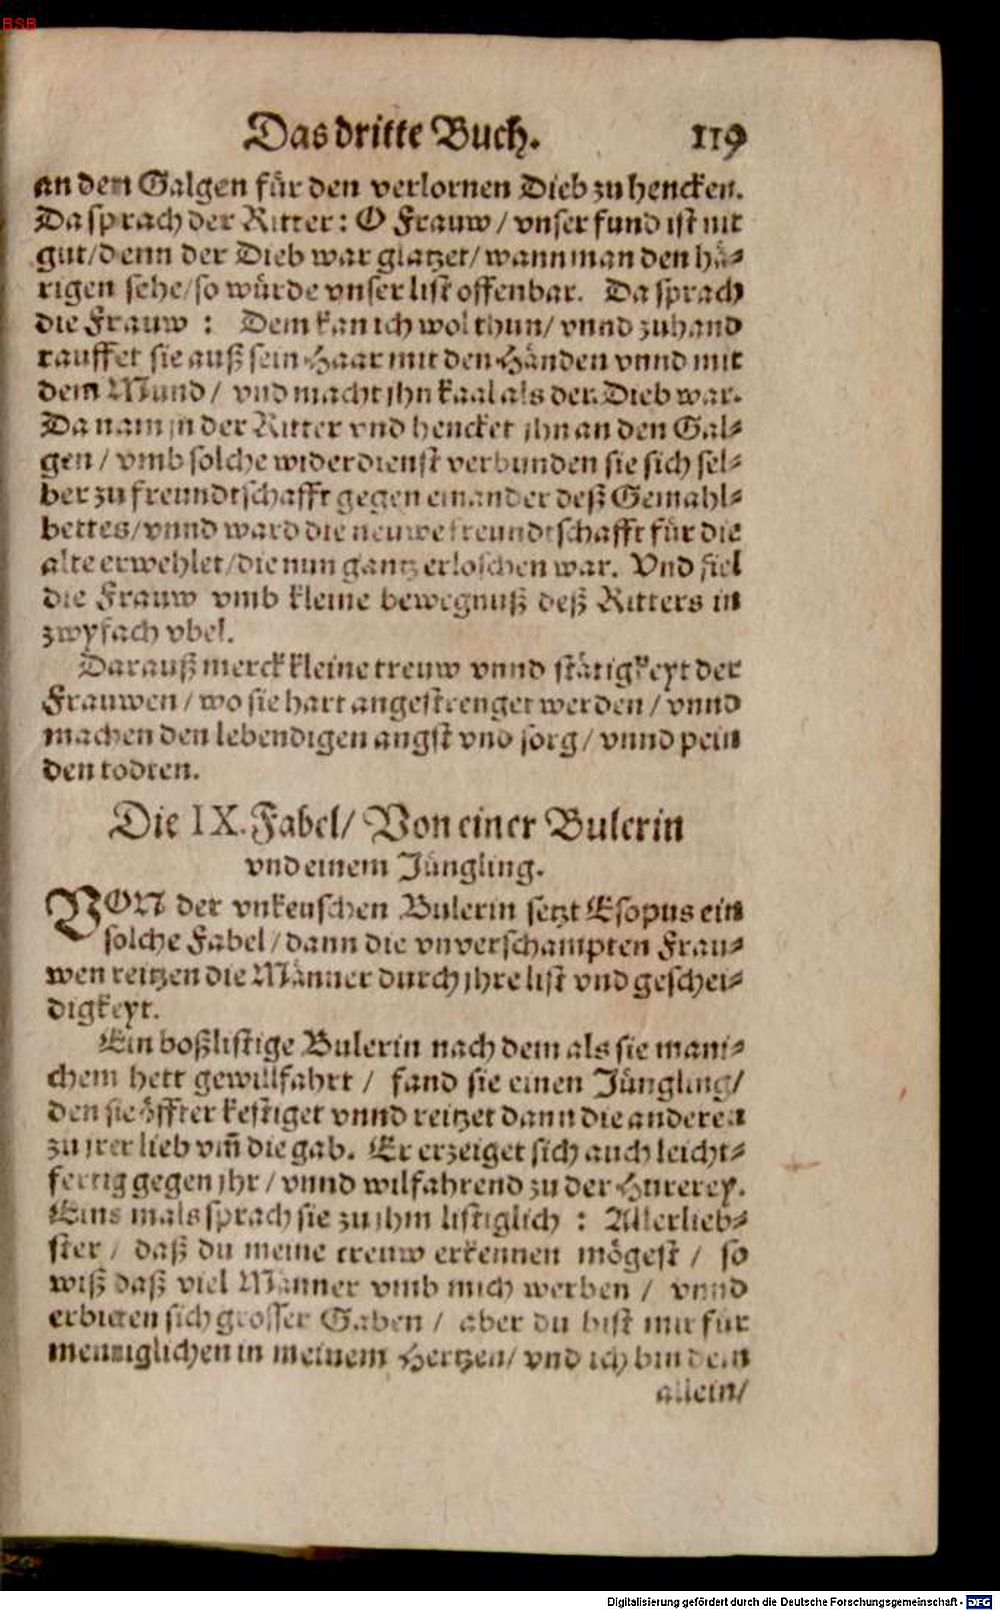 BSB
Das dritte Buch. 119
an den Galgen für den verlornen Dieb zu hencken.
Da sprach der Ritter: O Frauw / vnser fund ist nit
gut/denn der Dieb war glatzet/wann man den hä⸗
rigen sehe/so würde vnser list offenbar. Da sprach
die Frauw : Dem kan ich wol thun/ vnnd zuhand
rauffet sie auß sein Haar mit den Händen vnnd mit
dem Mund / vnd macht jhn kaal als der Dieb war.
Da nam jn der Ritter vnd hencket jhn an den Gal⸗
gen / vmb solche widerdienst verbunden sie sich sel⸗
ber zu freundtschafft gegen einander deß Gemahl⸗
bettes/vnnd ward die neuwe freundtschafft für die
alte erwehlet/die nun gantz erloschen war. Vnd fiel
die Frauw vmb kleine bewegnuß deß Ritters in
zwyfach vbel.
Darauß merck kleine treuw vnnd stätigkeyt der
Frauwen / wo sie hart angestrenget werden / vnnd
machen den lebendigen angst vnd sorg / vnnd pein
den todten.
Die IX. Fabel/ Von einer Bulerin
vnd einem Jüngling.
VON der vnkeuschen Bulerin setzt Esopus ein
solche Fabel/dann die vnverschampten Frau⸗
wen reitzen die Männer durch jhre list vnd geschei⸗
digkeyt.
Ein boßlistige Bulerin nach dem als sie mani⸗
chem hett gewillfahrt / fand sie einen Jüngling/
den sie öffter kestiget vnnd reitzet dann die anderen
zu jrer lieb vm̃ die gab. Er erzeiget sich auch leicht⸗
fertig gegen jhr / vnnd wilfahrend zu der Hurerey.
Eins mals sprach sie zu jhm listiglich : Allerlieb⸗
ster / daß du meine treuw erkennen mögest / so
wiß daß viel Männer vmb mich werben / vnnd
erbieten sich grosser Gaben / aber du bist mir für
menniglichen in meinem Hertzen/ vnd ich bin dein
allein/
Digitalisierung gefördert durch die Deutsche Forschungsgemeinschaft - DFG